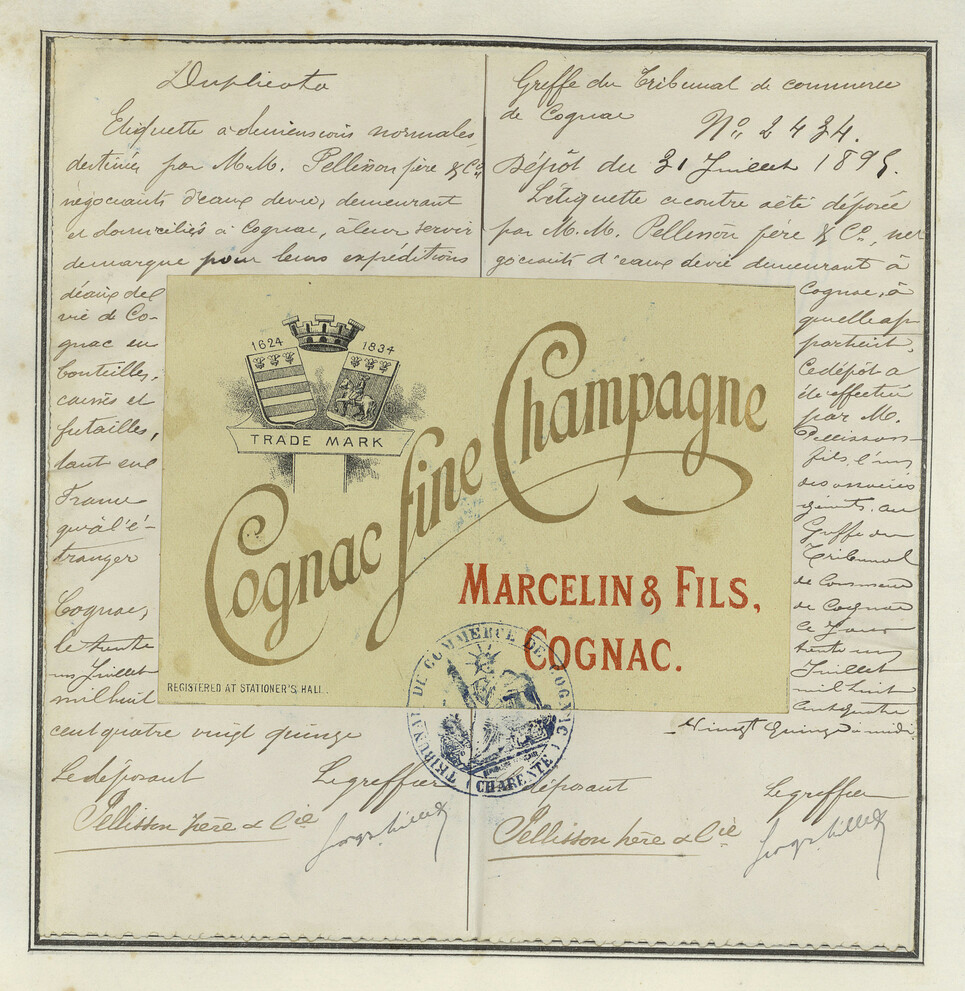 Duplicata
Etiquette à dimensions normales
destinée par M.M. Pellisson père & Co,
négociants d'eaux de vie, demeurant
et domiciliés à Cognac, à leur servir
de marque pour leurs expéditions
d'eaux de
vie de Co-
gnac en
bouteilles,
caisses et
futailles,
tant en
France
qu'à l'é-
tranger
Cognac,
le trente
un Juillet
mil huit
cent quatre vingt quinze
Le déposant Le greffier
Pellisson père & Cie
Greffe du Tribunal de commerce
de Cognac No 2434.
Dépôt du 31 Juillet 1895.
L'étiquette ci contre a été déposée
par M.M. Pellisson père & Co, né
gociants d'eaux de vie demeurant à
Cognac, à
qui elle ap
partient.
Ce dépôt a
été effectué
par M.
Pellisson
fils, l'un
des associés
gérants, au
Greffe du
Tribunal
de Commerce
de Cognac
ce jour
trente un
Juillet
mil huit
cent quatre
vingt Quinze à midi.
déposant Le greffier
Pellisson père & Cie
1624 1834
TRADE MARK
Cognac fine Champagne
MARCELIN & FILS,
COGNAC.
REGISTERED AT STATIONER'S HALL.
TRIBUNAL DE COMMERCE DE COGNAC (CHARENTE)